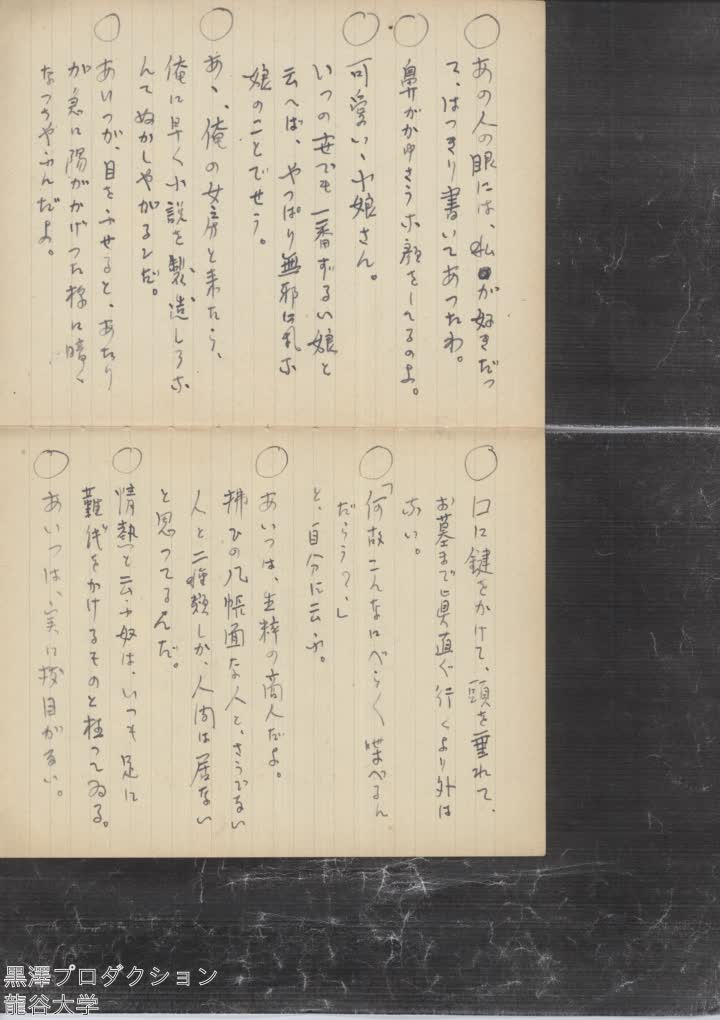 ○ あの人の眼には、私が好きだつ
て、はつきり書いてあつたわ。
○ 鼻がかゆさうな顔をしてるのよ。
○ 可愛い、小娘さん。
いつの世でも一番ずるい娘と
云へば、やつぱり無邪気な
娘のことでせう。
○ あゝ、俺の女房と来たら、
俺に早く小説を製造しろな
んてぬかしやがるンだ。
○ あいつが、目をふせると、あたり
が急に陽がかげつた様に暗く
なつちやふんだよ。
○ 口に鍵をかけて、頭を垂れて、
お墓まで真直ぐ行くより外は
ない。
○ 「何故こんなにべらべら喋べるん
だらう?」
と、自分に云ふ。
○ あいつは、生粋の商人だよ。
拂ひの几帳面な人と、さうでない
人と二種類しか、人間は居ない
と思つてるんだ。
○ 情熱と云ふ奴は、いつも足に
難儀をかけるものと極つてゐる。
○ あいつは、実に抜目がない。
黒澤プロダクション
龍谷大学